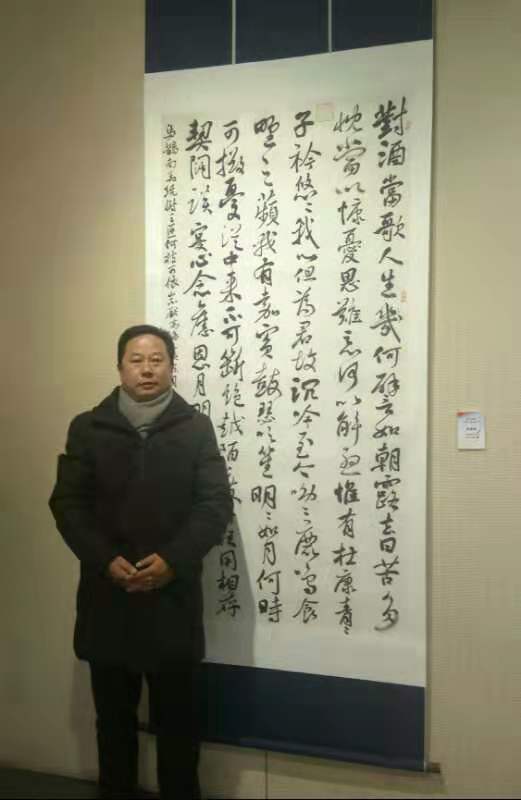 對酒當歌人生幾何譬如朝露去日苦多
慨當以慷憂思難忘何以解憂惟有杜康青々
子衿悠々我心但為君故沉吟至今呦々鹿鳴食
野之蘋我有嘉賓鼓瑟吹笙明々如月何時
可掇憂從中來不可斷絕越陌用相存
契闊談宴心念舊恩月明
烏鵲南飛繞樹三匝何枝可依